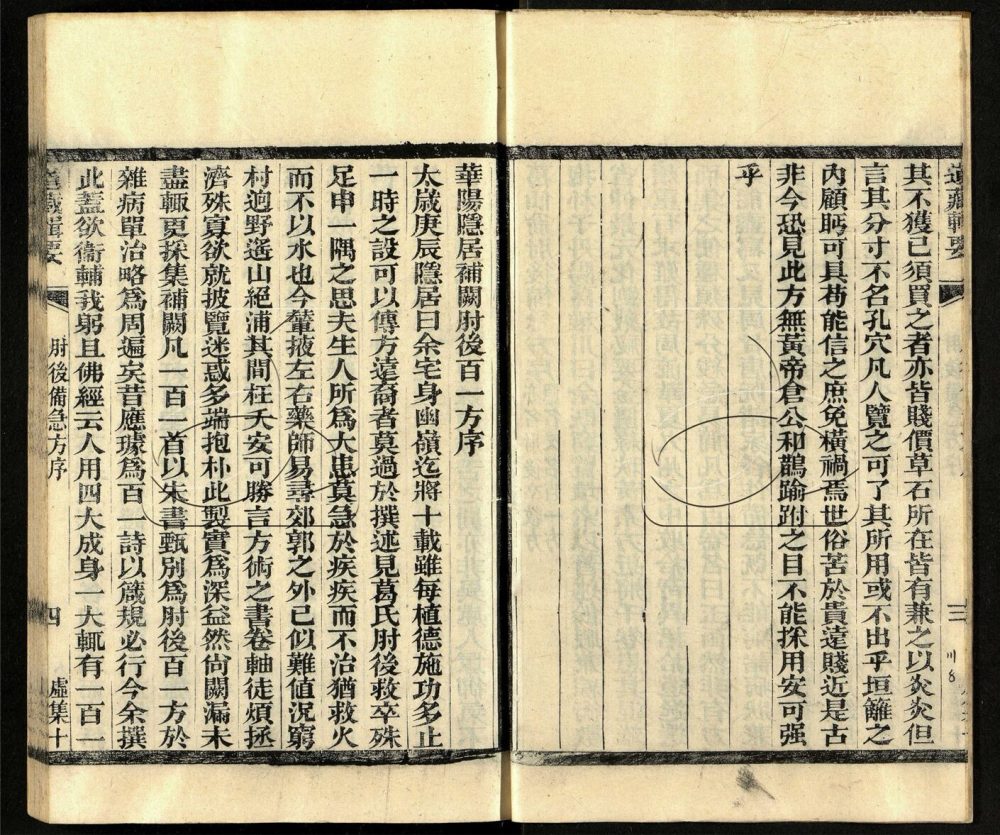 道藏輯要
三
其不獲已須買之者亦皆賤價草石所在皆有兼之以灸灸但
言其分寸不名孔穴凡人覽之可了其所用或不出乎垣籬之
內顧眄可具苟能信之庶免橫禍焉世俗苦於貴遠賤近是古
非今恐見此方無黃帝倉公和鵲踰跗之目不能採用安可强
乎
華陽隱居補闕肘後百一方序
太歲庚辰隱居曰余宅身幽嶺迄將十載雖每植德施功多止
一時之設可以傳方遠裔者莫過於撰述見葛氏肘後救卒殊
足申一隅之思夫生人所爲大患莫急於疾疾而不治猶救火
而不以水也今輦掖左右藥師易尋郊郭之外已似難値況窮
村迥野遙山絕浦其間枉夭安可勝言方術之書卷軸徒煩拯
濟殊寡欲就披覽迷惑多端抱朴此製實爲深益然尙闕漏未
盡輒更採集補闕凡一百一首以朱書甄別爲肘後百一方於
雜病單治略爲周遍矣昔應璩爲百一詩以箴規心行今余撰
此蓋欲衞輔我躬且佛經云人用四大成身一大輒有一百一
道藏輯要
肘後備急方序
四
虛集十